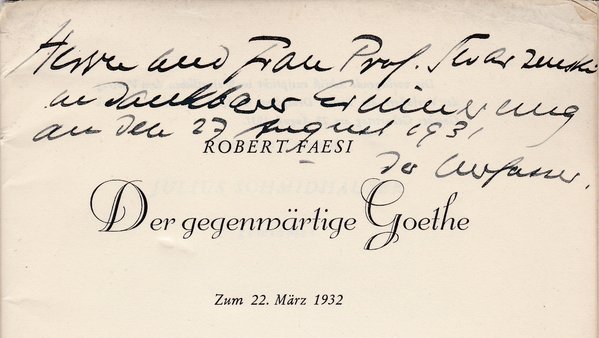 Herrn und Frau Prof. Swarzenski
in dankbarer Erinnerung
an den 27 August 1931
ROBERT FAESI
der Verfasser.
Der gegenwärtige Goethe
Zum 22. März 1932